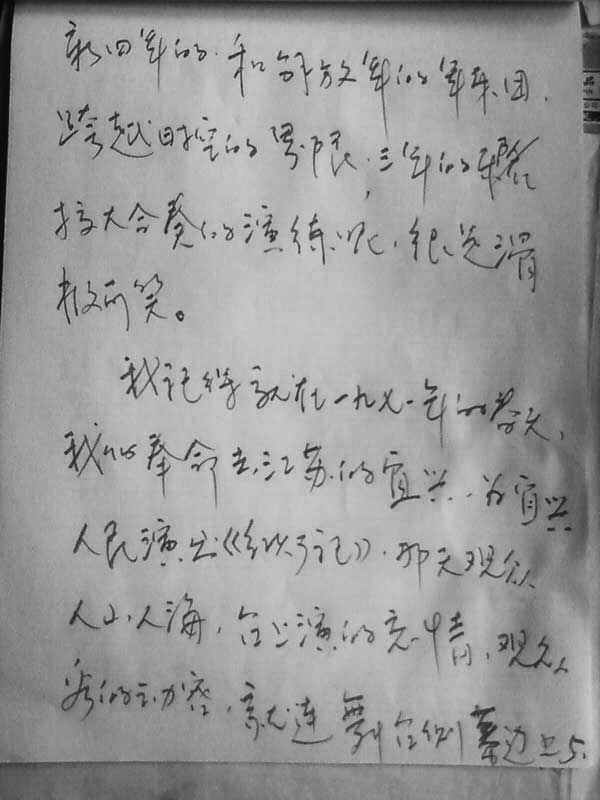 新四军的.和解放军的军乐团,
跨越时空的界限,三军的联合
大合奏的演练呢,很是滑
稽可笑。
我记得就在一九七一年的春天,
我们奉命去江苏的宜兴.为宜兴
人民演出《红灯记》.那天观众
人山人海,台上演的充情,观众
看的动容,就连舞台侧幕边上